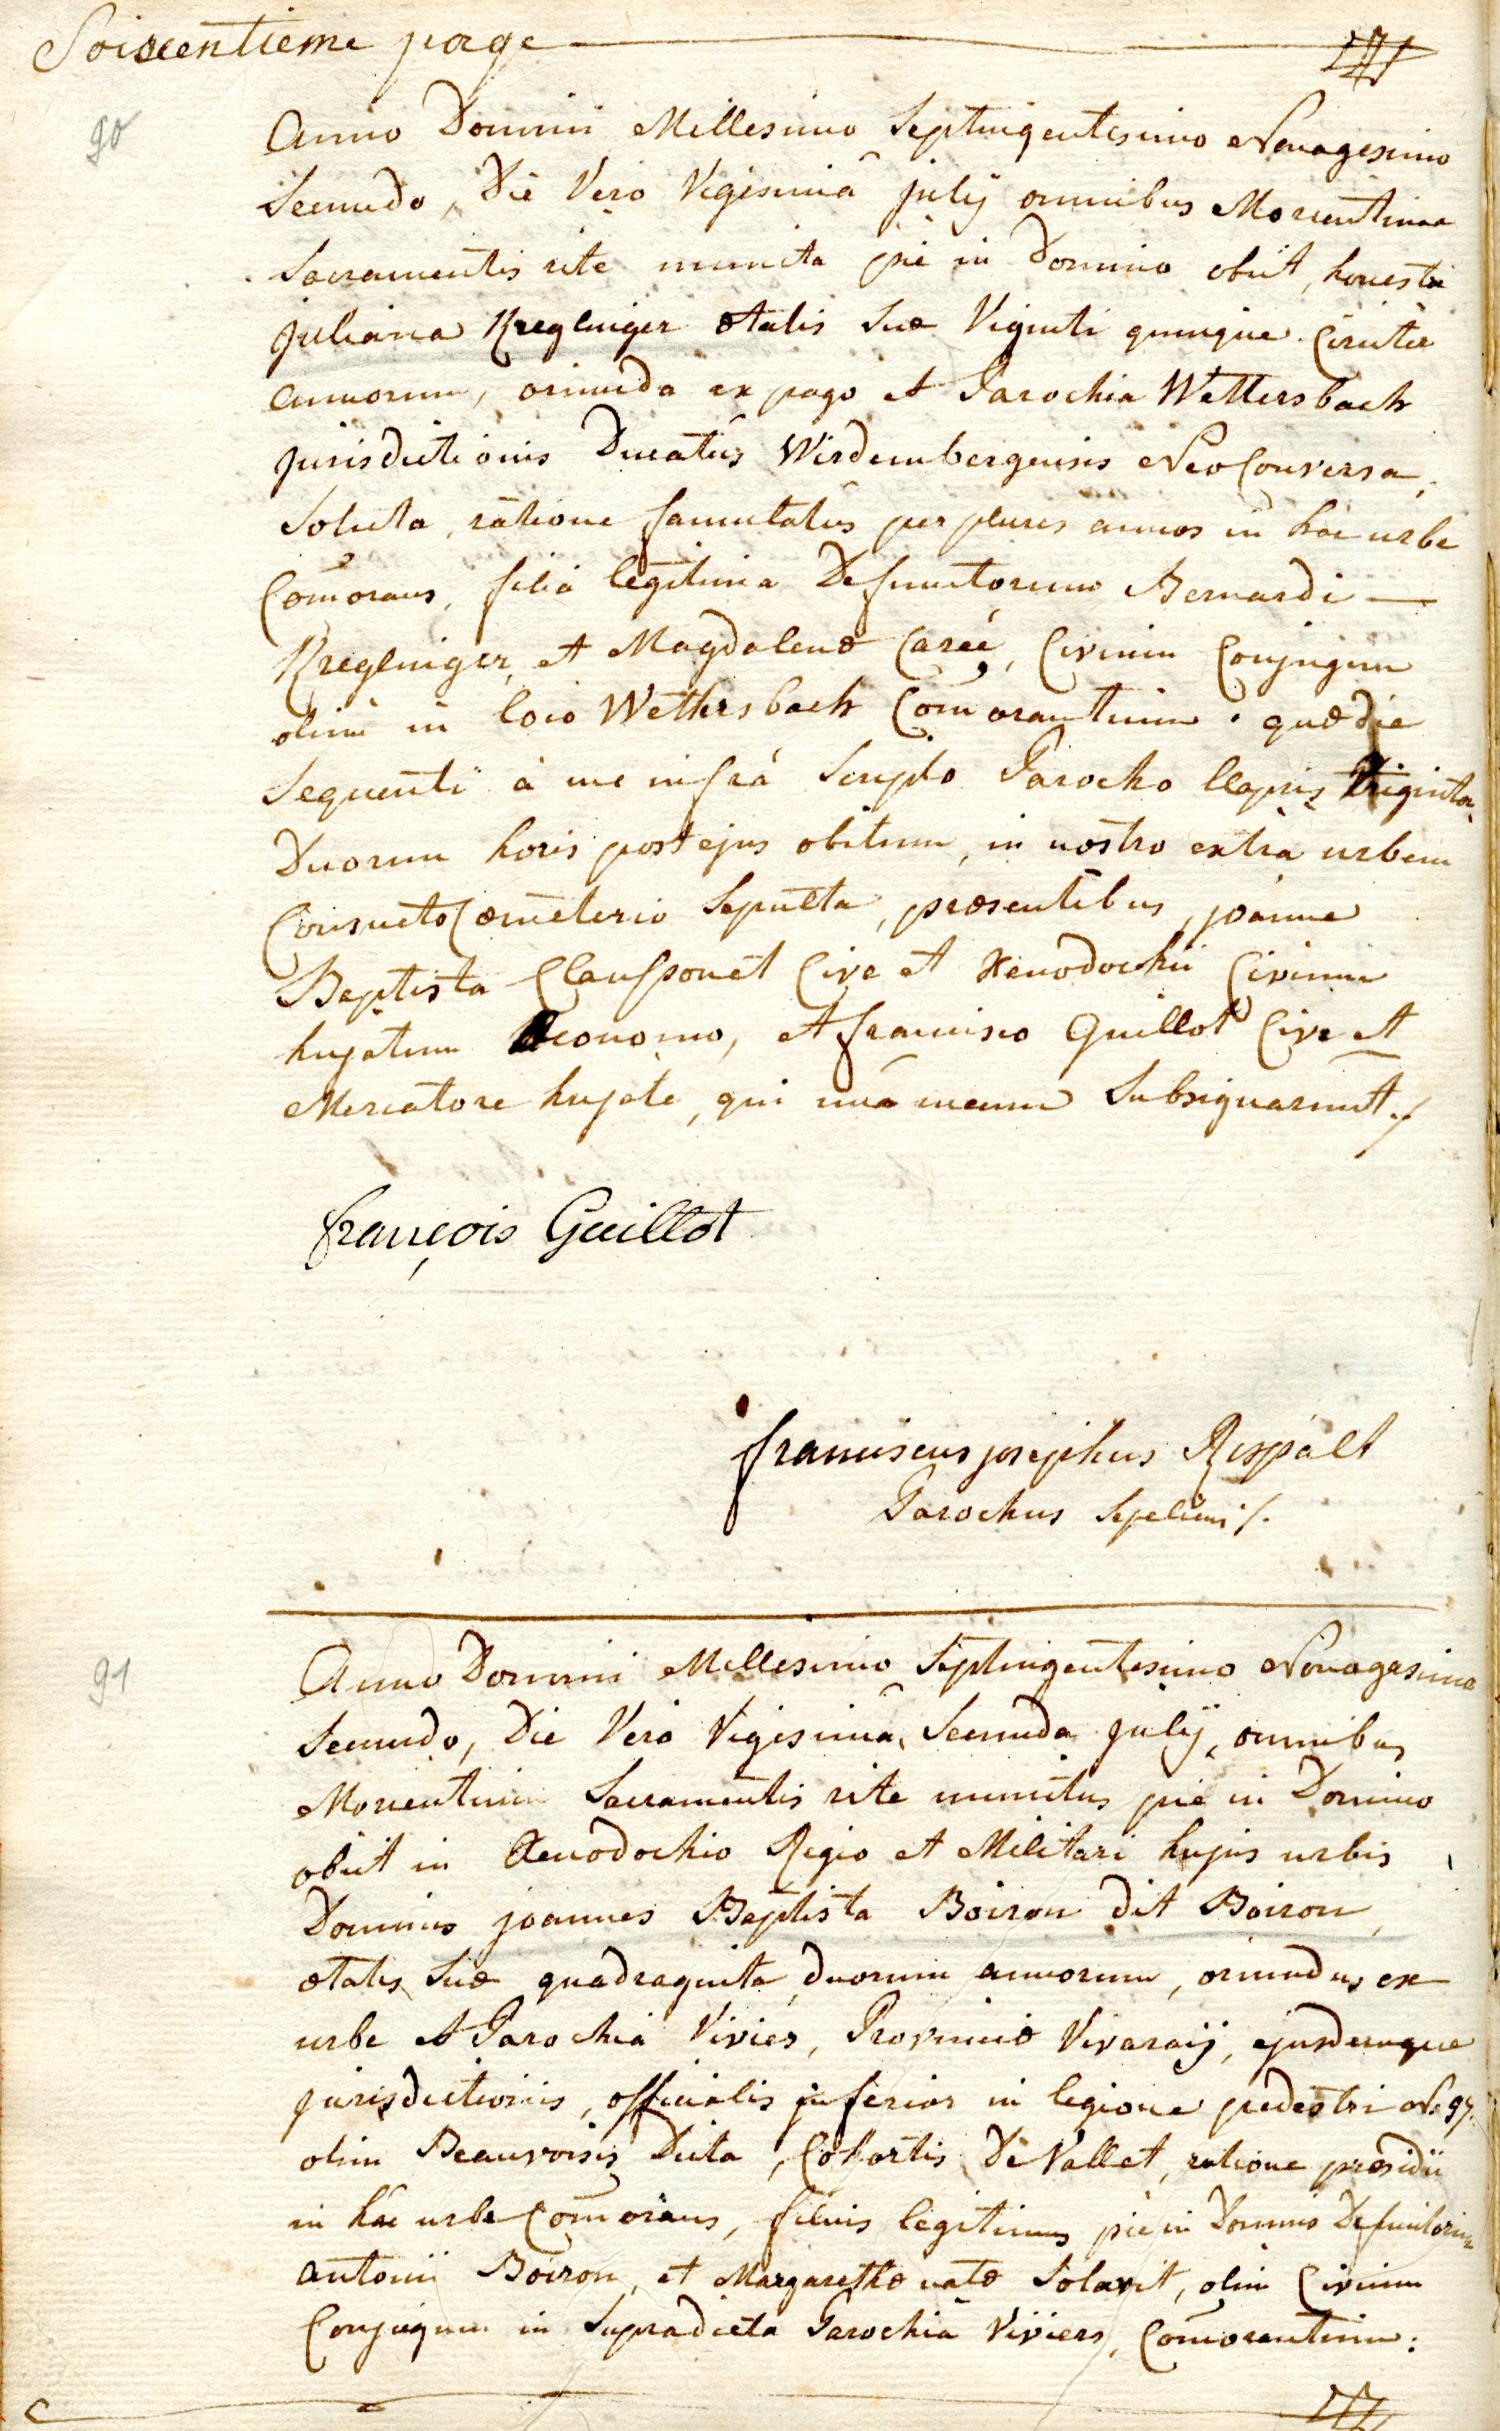 Soixentieme page
90
Anno Domini Millesimo Septingentesimo Nonagesimo
Secundo, Die Vero Vigesimâ julij omnibus Morientium
Sacramentis rite munita pie in Domino obiit, honesta
juliana Kreglinger ætatis suæ Viginti quinque Circiter
annorum, oriunda ex pago et Parochia Wettersbach
jurisdictionis Ducatûs Wirdembergensis NeoConversa,
Soluta, ratione famulatûs per plures annos in hac urbe
Com̄orans, filia legitima Defunctorum Bernardi
Kreglinger, et Magdalenæ Careé, Civium Conjugum
olim in loco Wettersbach Com̄orantium. quæ die
Sequenti à me infrá Scripto Parocho Elapsis Triginta
Duorum horis post ejus obitum, in nostro extra urbem
Consueto Cœmeterio Sepulta, præsentibus, joanne
Baptista Clausponet Cive et Xenodochii Civium
hujatum Œconomo, et francisco Guillot Cive et
Mercatore hujate, qui unà mecum Subsignarunt./
françois Guillot
franciscus josephus Rispalt
Parochus Sepeliens /.
91
Anno Domini Millesimo Septingentesimo Nonagesimo
Secundo, Die Vero Vigesimâ Secunda julij, omnibus
Morientium Sacramentis rite munitus pie in Domino
obiit in Xenodochio Regio et Militari hujus urbis
Dominus joannes Baptista Boiron dit Boiron,
ætatis suæ quadraginta duorum annorum, oriundus ex
urbe et Parochiâ Viviés, Provinciæ Vivaraij, ejusdemque
jurisdictionis, officialis inferior in legione pedestri No. 97.
olim Beauvoisis Dicta, Cohortis De Vallet, ratione præsidii
in hâc urbe Com̄orans, filius legitimus piè in Domino Defunctorum
antonii Boiron, et Margarethæ natæ Solavit, olim Civium
Conjugum in Supradicta Parochiâ Viviers, Com̄orantium: